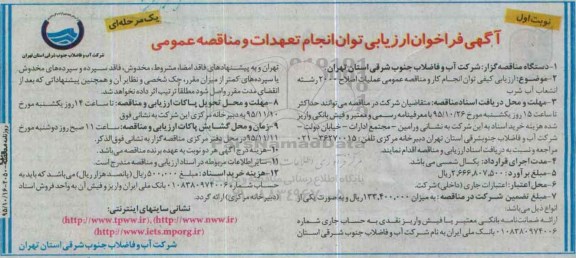 نوبت اول
یک مرحله‌ای
آگهی فراخوان ارزیابی توان انجام تعهدات و مناقصه عمومی
شرکت آب و فاضلاب جنوب شرقی استان تهران
۱- دستگاه مناقصه گزار: شرکت آب و فاضلاب جنوب شرقی استان تهران
۲- موضوع: ارزیابی کیفی توان انجام کار و مناقصه عمومی عملیات اصلاح ۲۰۰ رشته
انشعاب آب شرب
۳- مهلت و محل دریافت اسناد مناقصه: متقاضیان شرکت در مناقصه می‌توانند حداکثر
تا ساعت ۱۵ روز یکشنبه مورخ ۹۵/۱۰/۲۶ با معرفینامه رسمی و معتبر و فیش بانکی واریز
شده هزینه خرید اسناد به این شرکت به نشانی ورامین - مجتمع ادارات - خیابان دولت -
شرکت آب و فاضلاب جنوب شرقی استان تهران دبیرخانه مرکزی تلفن: ۱۵-۳۶۲۷۰۰۱۰-۰۲۱
مراجعه و نسبت به دریافت اسناد ارزیابی و مناقصه اقدام نمایند.
۴- مدت اجرای قرارداد: یکسال شمسی می باشد.
۵- مبلغ برآورد: ۲.۶۶۸.۸۰۷.۵۰۰ ریال
۶- محل اعتبار: اعتبارات جاری (داخلی) شرکت.
۷- مبلغ تضمین شرکت در مناقصه: به میزان ۱۳۳.۴۰۰.۰۰۰ ریال و به صورت یکی از
انواع ذیل می باشد
ارائه ضمانت نامه بانکی معتبر یا فیش واریز نقدی به حساب جاری شماره
۰۱۰۸۳۸۰۹۷۴۰۰۶ بانک ملی ایران به نام شرکت آب و فاضلاب جنوب شرقی استان
تهران و به پیشنهادهای فاقد امضاء، مشروط، مخدوش، فاقد سپرده و سپرده‌های مخدوش
یا سپرده‌های کمتر از میزان مقرر، چک شخصی و نظایر آن و همچنین پیشنهاداتی که بعد از
انقضای مدت مقرر واصل شود مطلقا ترتیب اثر داده نخواهد شد.
۸- مهلت و محل تحویل پاکات ارزیابی و مناقصه: تا ساعت ۱۴ روز یکشنبه مورخ
۹۵/۱۱/۱۰ به دبیرخانه مرکزی این شرکت به نشانی فوق
۹- زمان و محل گشایش پاکات ارزیابی و مناقصه: ساعت ۱۱ صبح روز دوشنبه مورخ
۹۵/۱۱/۱۱ در محل دفتر مرکزی مناقصه گزار به نشانی فوق الذکر
۱۰- هزینه درج آگهی هر دو نوبت به عهده برنده مناقصه می باشد.
۱۱- سایر اطلاعات مربوطه در اسناد ارزیابی و مناقصه مندرج است
۱۲- هزینه خرید اسناد: مبلغ ۵۰۰.۰۰۰ ریال (پانصد هزار ریال) می باشد که باید به
حساب شماره ۰۱۰۸۳۸۰۹۷۴۰۰۶ بانک ملی ایران واریز و فیش آن به واحد فروش اسناد
(دبیرخانه مرکزی) ارائه گردد.
نشانی سایتهای اینترنتی:
(http://www.tpww.ir), (http://www.nww.ir)
(http://www.iets.mporg.ir)
شرکت آب و فاضلاب جنوب شرقی استان تهران